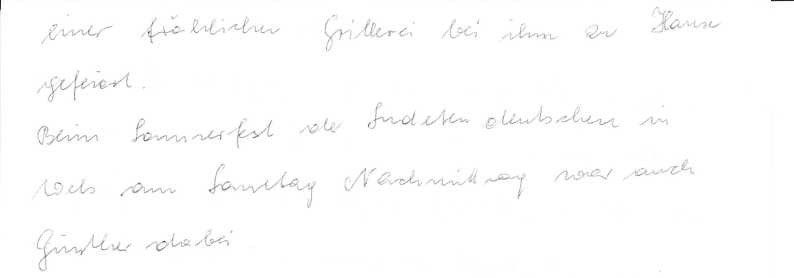 einer fröhlichen Grillerei bei ihm zu Hause
gefeiert.
Beim Sommerfest der Sudetendeutschen in
Wels am Samstag Nachmittag war auch
Günther dabei